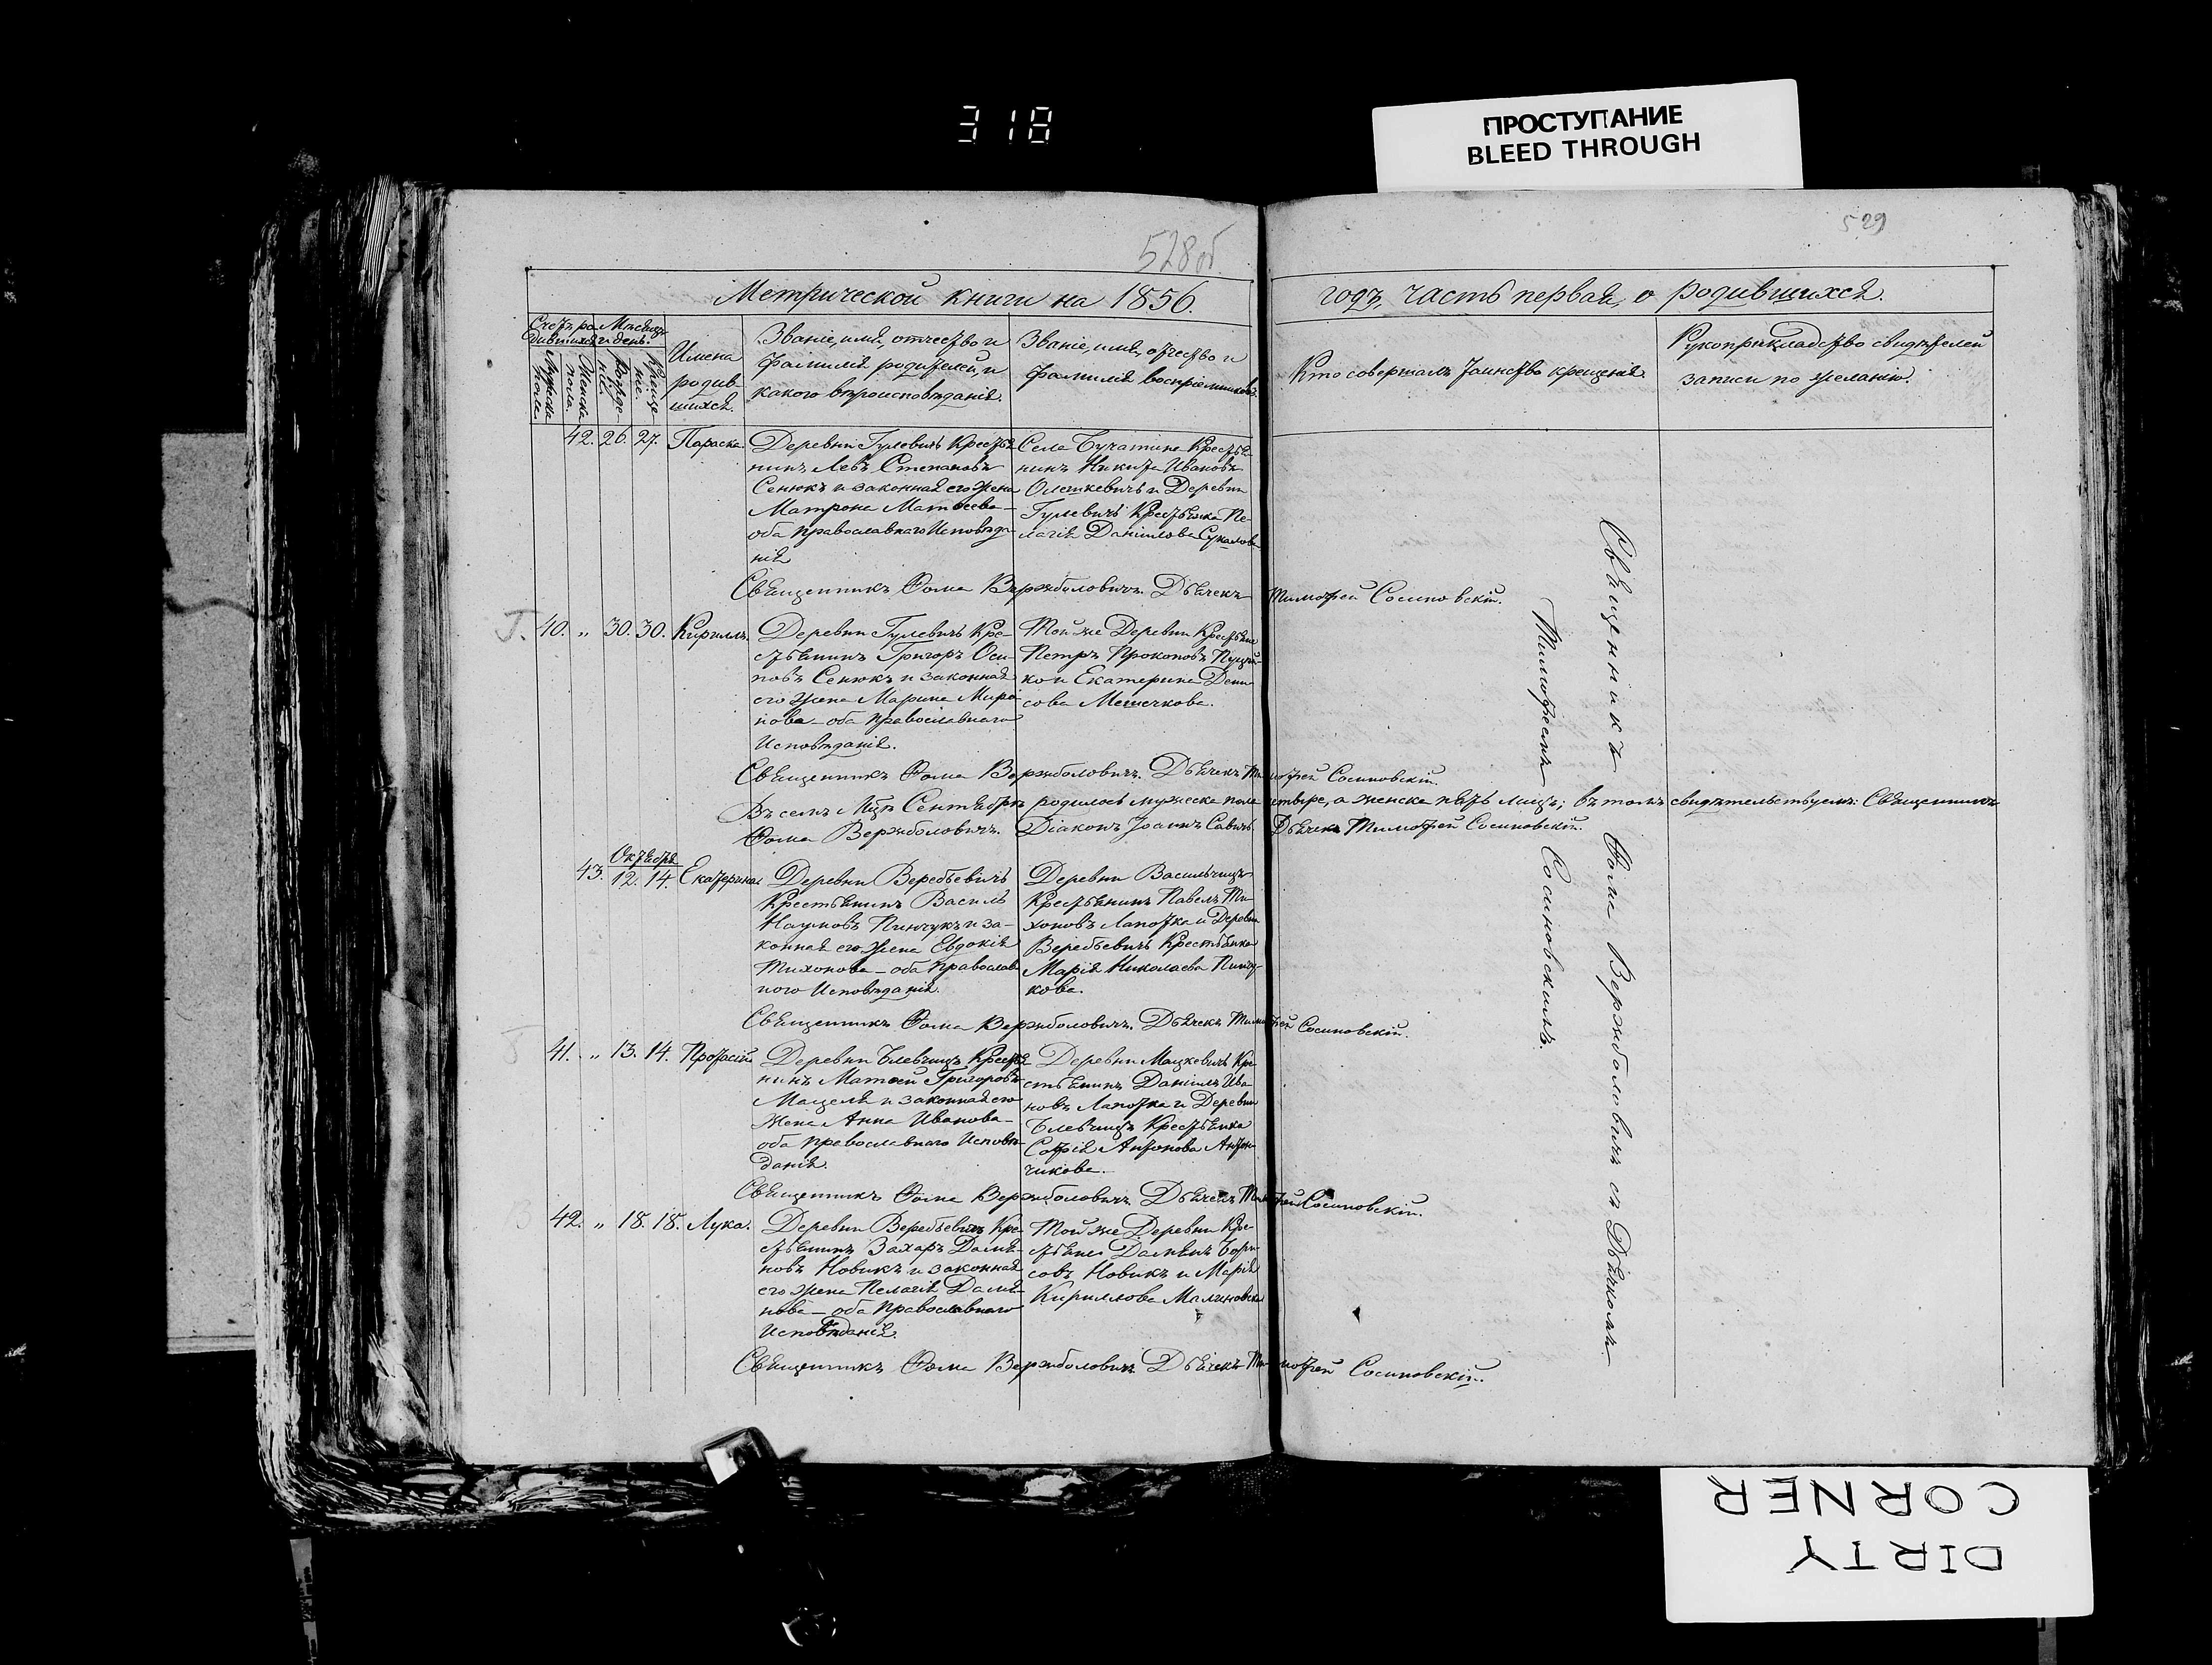 318
ПРОСТУПАНИЕ
BLEED THROUGH
528об
529
Метрической книги на 1856.
годъ, часть первая, о родившихся.
Счетъ ро-
дившихся
Мѣсяцъ
и день.
Мужеска
пола.
Женска
пола.
Рожде-
нія
Креще-
нія.
Имена
родив-
шихся.
Званіе, имя, отчество и
фамилія родителей, и
какого вѣроисповѣданія.
Званіе, имя, отчество и
фамилія воспріемниковъ.
Кто совершалъ таинство крещенія.
Рукоприкладство свидѣтелей
записи по желанію.
42. 26. 27. Параска.
Деревни Гулевичъ Крестья
нинъ Левъ Степановъ
Сенюкъ и законная его жена
Матрона Матѳеева
оба православнаго Исповѣда-
нія
Села Бучатина Крестья-
нинъ Никита Ивановъ
Олешкевичъ и Деревни
Гулевичъ Крестьянка Пе-
лагія Даніилова Сукалова
Священникъ Ѳома Вержболовичъ. Дьячекъ Тимофей Сосиновскій.
40. „ 30. 30. Кириллъ.
Деревни Гулевичъ Кре-
стьянинъ Григоръ Оси-
повъ Сенюкъ и законная
его жена Марина Миро
нова – оба православнаго
Исповѣданія.
Той же Деревни Крестьяне
Петръ Прокоповъ
ко и Екатерина Дени
сова Мешечкова.
Священникъ Ѳома Вержболовичъ. Дьячекъ Тимофей Сосиновскій.
Въ семъ Мцѣ Сентябрѣ родилось мужеска пола четыре, а женска пять лицъ; въ томъ свидѣтельствуемъ: Священникъ
Ѳома Вержболовичъ. Діаконъ Іоаннъ Савичъ. Дьячекъ Тимофей Сосиновскій.
Октября
43. 12. 14. Екатерина.
Деревни Веребьевичъ
Крестьянинъ Василь
Наумовъ Пинчукъ и за-
конная его жена Евдокія
Тихонова – оба православ
ного Исповѣданія.
Деревни Васильчицъ
Крестьянинъ Павелъ Ти-
хоновъ Лапотка и Деревни
Веребьевичъ Крестьянка
Марія Николаева Пинчу-
кова.
Священникъ Ѳома Вержболовичъ. Дьячекъ Тимофей Сосиновскій.
41. „ 13. 14. Протасій
Деревни Блевчицъ Крестья
нинъ Матѳей Григоровъ
Мацеля и законная его
жена Анна Иванова –
оба православнаго Исповѣ-
данія.
Деревни Мацкевичъ Кре-
стьянинъ Даніилъ Ива
новъ Лапотка и Деревни
Блевчицъ Крестьянка
Софія Антонова Антон-
чикова.
Священникъ Ѳома Вержболовичъ. Дьячекъ Тимофей Сосиновскій.
42. „ 18. 18. Лука.
Деревни Веребьевичъ Кре-
стьянинъ Захаръ Дамя-
новъ Новикъ и законная
его жена Пелагія Дамя-
нова – оба Православнаго
Исповѣданія.
Той же Деревни Кре-
стьяне Дамьянъ Бори-
совъ Новикъ и Марія
Кириллова Малиновска
Священникъ Ѳома Вержболовичъ. Дьячекъ Тимофей Сосиновскій.
Священникъ Ѳома Вержболовичъ съ Дьячкомъ
Тимофеемъ Сосиновскимъ.
DIRTY
CORNER